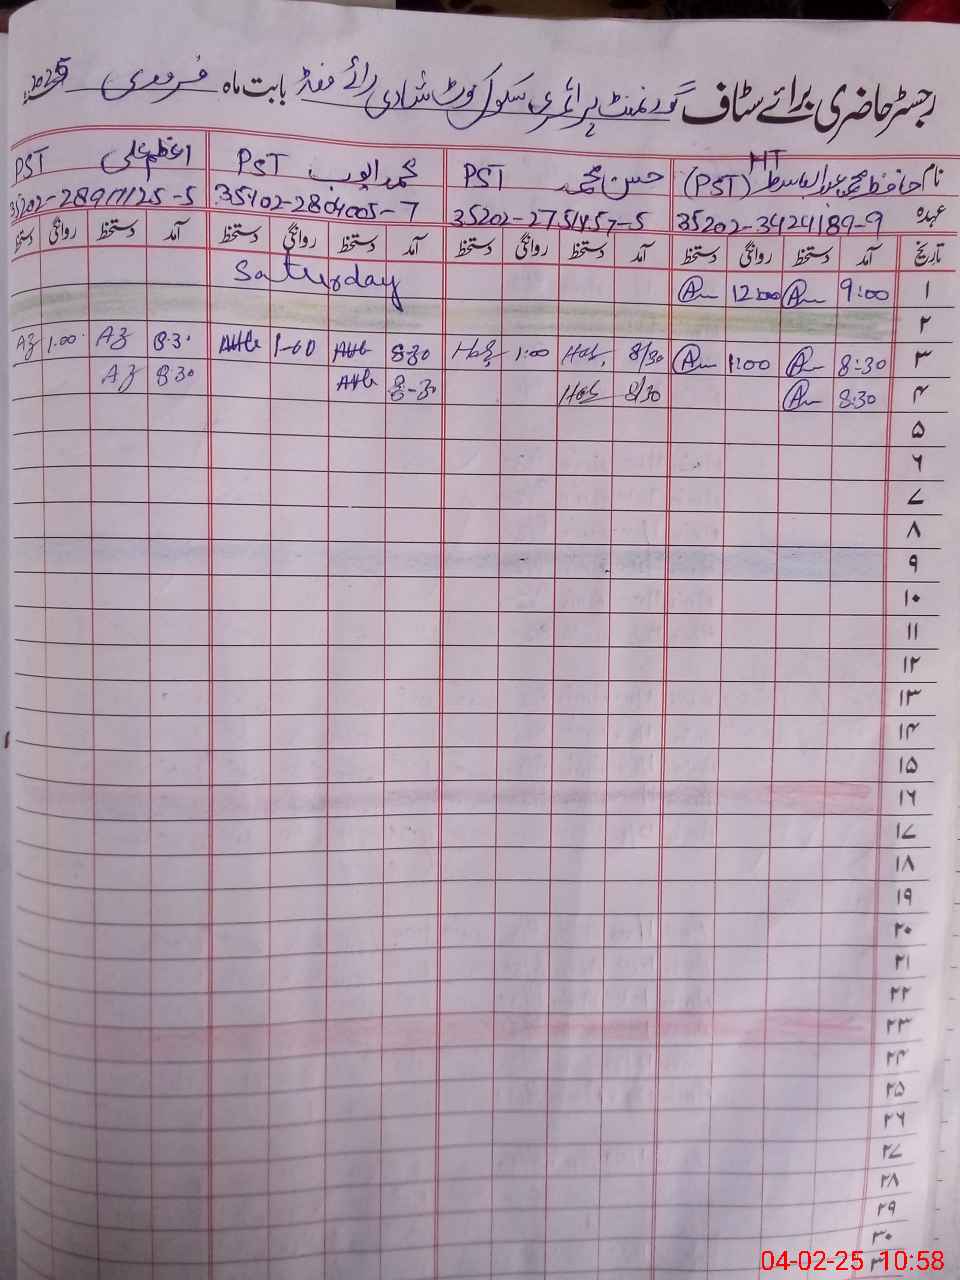 رجسٹر حاضری برائے سٹاف گورنمنٹ پرائمری سکول کوٹ شادی رائے ونڈ بابت ماہ فروری 2025ء
نام حافظ محمد عبدالباسط (PST) HT حسن محمد PST محمد ایوب PST اعظم علی PST
عہدہ 35202-3424189-9 35202-2751457-5 35402-2804005-7 35202-28911125-5
تاریخ آمد دستخظ روانگی دستخظ آمد دستخظ روانگی دستخظ آمد دستخظ روانگی دستخظ آمد دستخظ روانگی دستخظ
۱ 9:00 12:00 Saturday
۲
۳ 8:30 1:00 8/30 Has 1:00 Has 8-30 1-00 8.30 Az 1.00 Az
۴ 8:30 8/30 Has 8-30 8.30 Az
۵
۶
۷
۸
۹
۱۰
۱۱
۱۲
۱۳
۱۴
۱۵
۱۶
۱۷
۱۸
۱۹
۲۰
۲۱
۲۲
۲۳
۲۴
۲۵
۲۶
۲۷
۲۸
۲۹
۳۰
04-02-25 10:58